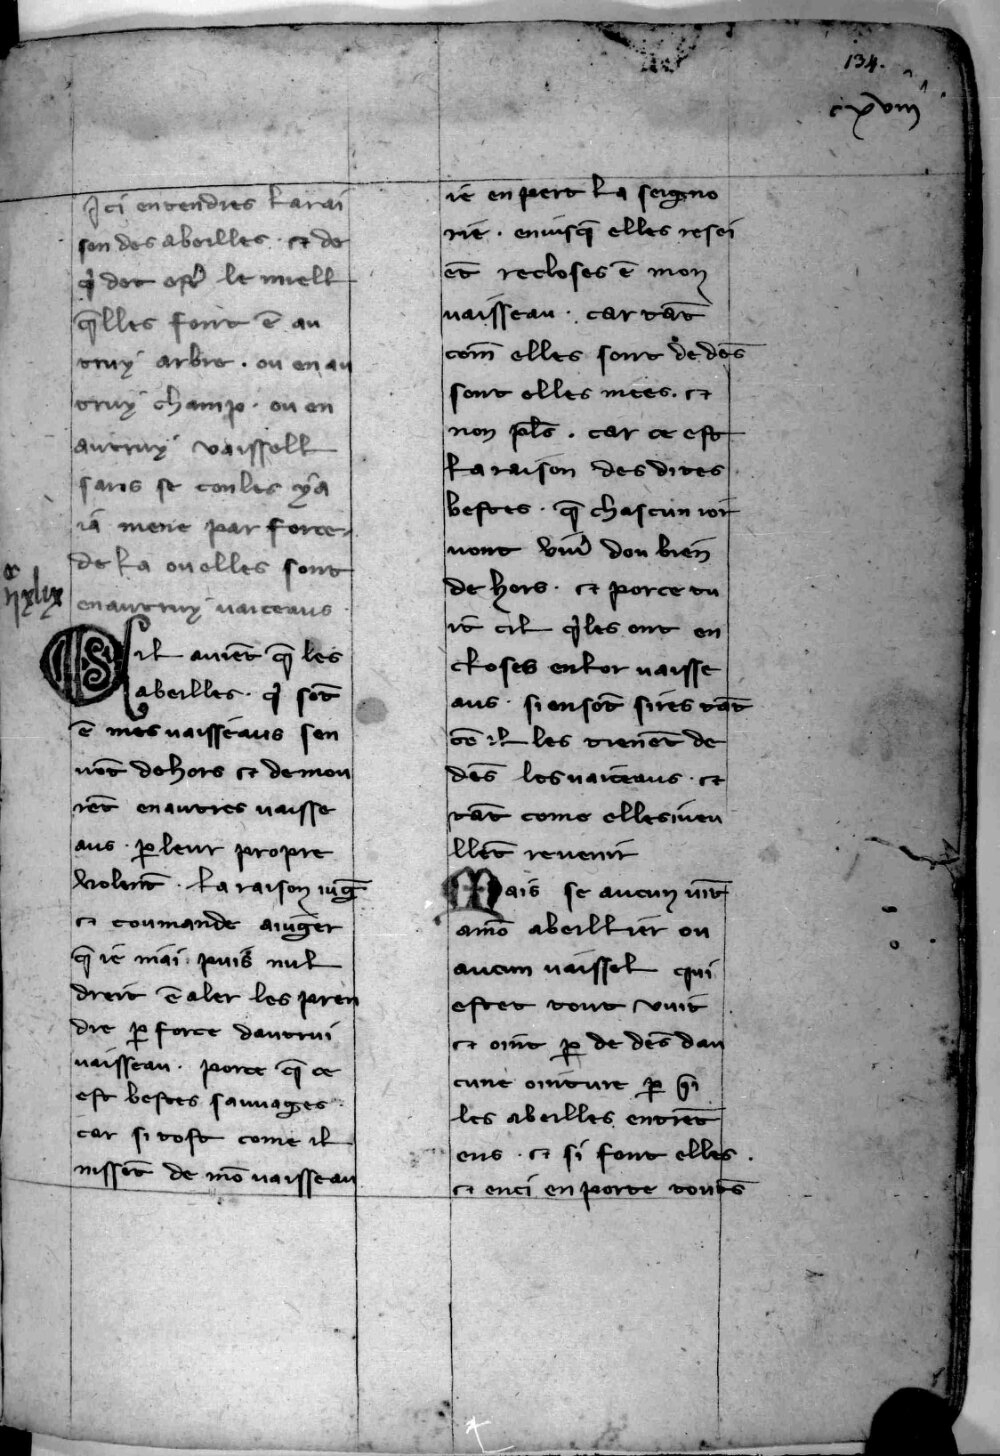 134.
cxviij
Jci entendres la rai
son des abeilles · et de
q̃ dot estr̃ le miell
q̃lles font ẽ au
truy arbre · ou en au
truy champ · ou en
autruy vaissell
sans se con les y a
ia mene par force
de la ou elles sont
en autruy vaiceaus ·
Sil auiẽt q̃ les
abeilles · q̃ sõt
ẽ mes vaisseaus sen
uõt dehors et demou
rẽt en autres vaisse
aus · ꝑ leur propre
volent̃ · la raison iug̃
et coumande a iuger
q̃ ie niai puis nul
dreit ẽ aler les pren
dre ꝑ force dautrui
vaisseau · porce q̃ ce
est bestes sauuages ·
car si tost come il
nissẽt de mõ vaisseau
ie en pert la seigno
rie · en iusq̃ elles resei
ẽt recloses ẽ mon
vaisseau · car tãt
com̃ elles sont dedẽs
sont elles mees · et
non pl̃s · car ce est
la raison des dites
bestes · q̃ chascun ior
uont viur̃ dou bien
de hors · et por ce tu
it cil q̃ les ont en
closes en lor vaisse
aus · si en sõt sires tãt
cõ il les tienẽt de
dẽs les vaiceaus · et
tãt come elles i veu
llẽt reuenir
Mais se aucun uiẽt
a mõ abeillier ou
aucun vaissel qui
estet tout vuit
et oint ꝑ de dẽs dau
cune ointure ꝑ q̃i
les abeilles entrẽt
ens · et si font elles ·
et enci en porte toutes